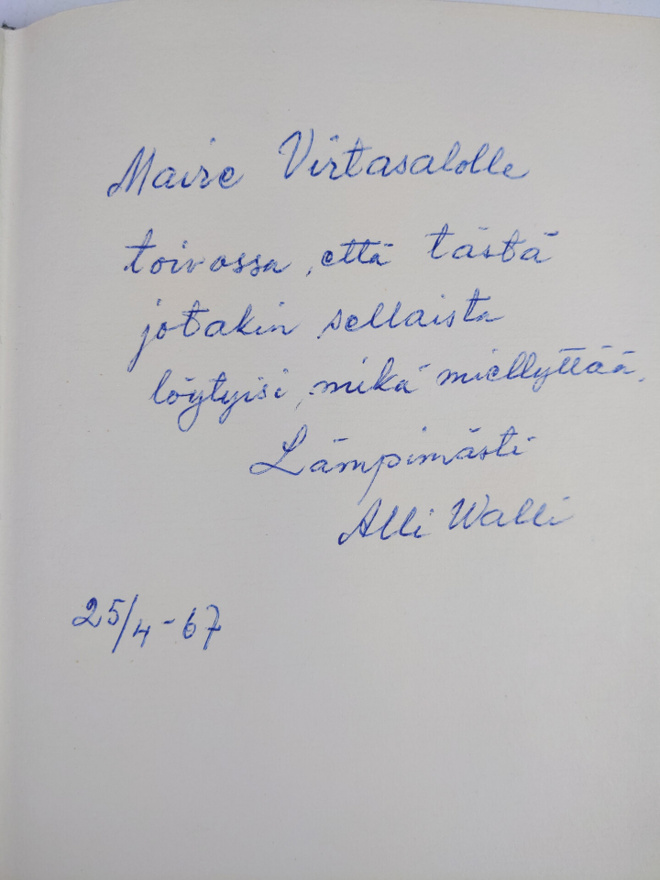 Maire Virtasalolle
toivossa, että tästä
jotakin sellaista
löytyisi, mikä miellyttää.
Lämpimästi
Alli Walli
25/4-67